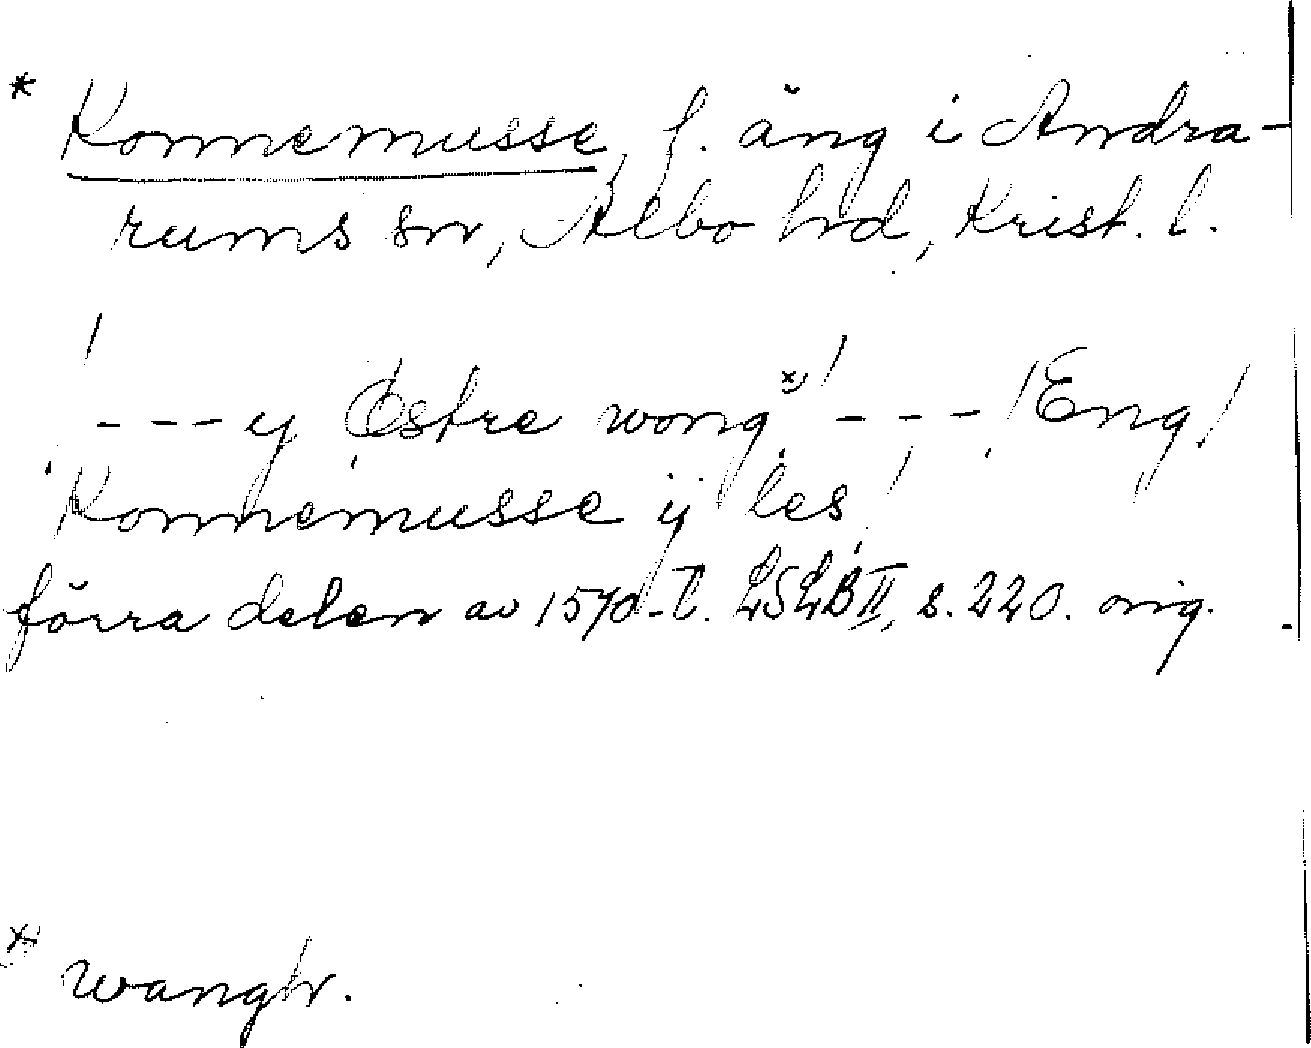 * Konnemusse, f. äng i Andra-
rums sn, Albo hd, Krist. l.
/---y Østre wong x) / --- / Eng /
Konnemusse ij les /
förra delen av 1570-t. LSLB II, s. 220. orig.
x)